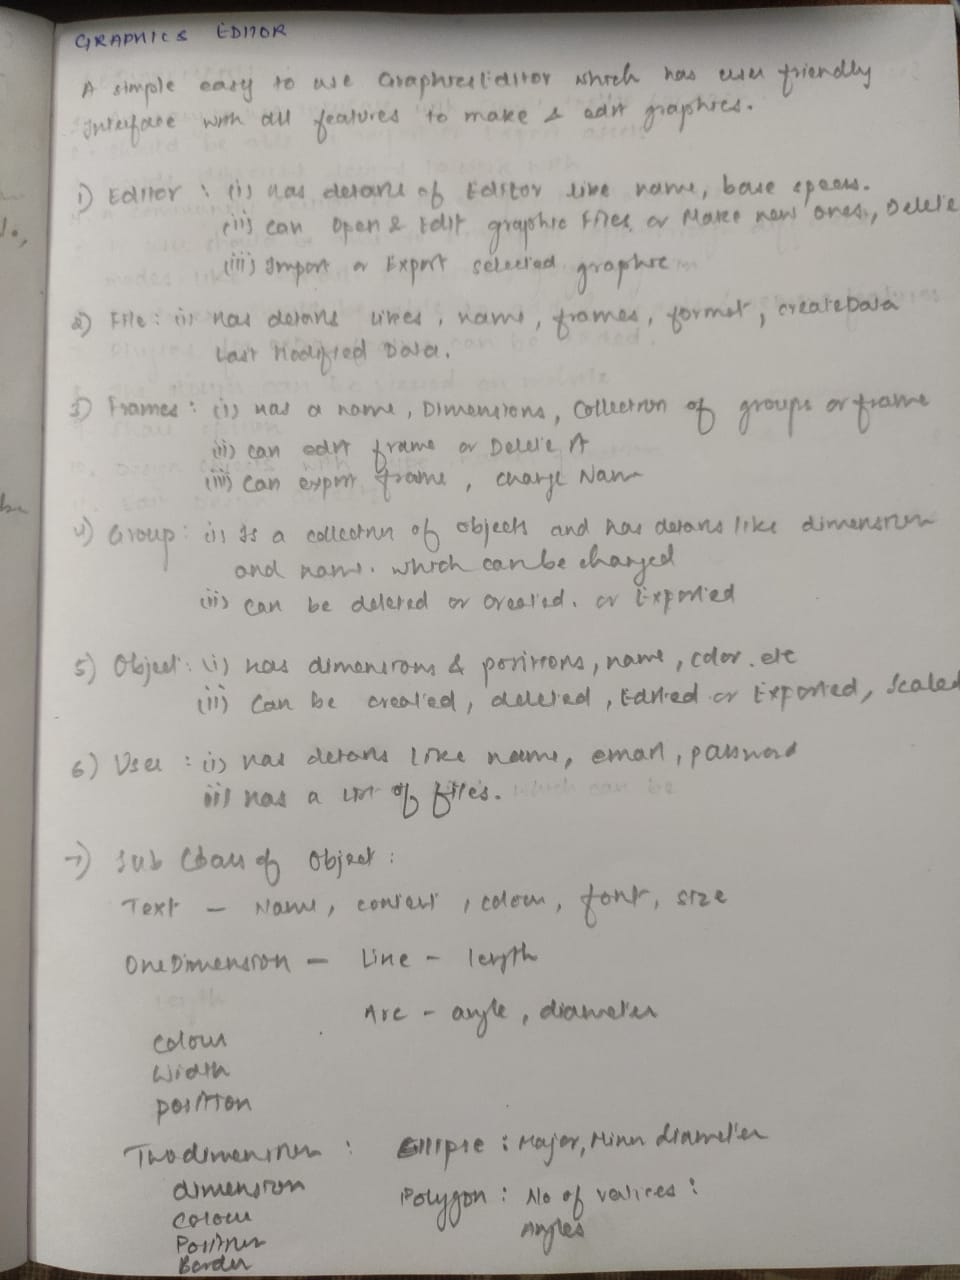 GRAPHICS EDITOR
A simple easy to use Graphics Editor which has user friendly
Interface with all features to make & edit graphics.
1) Editor : (i) has details of Editor like name, base specs.
(ii) can Open & Edit graphic Files or Make new ones, Delete
(iii) Import or Export selected graphic
2) File : (i) has details like, name, frames, format, createData
Last Modified Data.
3) Frames : (i) has a name, Dimensions, Collection of groups or frame
(ii) can edit frame or Delete it
(iii) can export frame, change Name
4) Group : (i) Is a collection of objects and has details like dimension
and name. which can be changed
(ii) can be deleted or created. or Exported
5) Object : (i) has dimensions & positions, name, color. etc
(ii) Can be created, deleted, Edited or Exported, Scaled
6) User : (i) has details like name, email, password
(ii) has a list of files.
7) Sub Class of Object :
Text - Name, content, colour, font, size
OneDimension - Line - length
Arc - angle, diameter
colour
width
position
Twodimension : Ellipse : Major, Minor diameter
dimension
Polygon : No of vertices :
colour
Angles
Position
Border